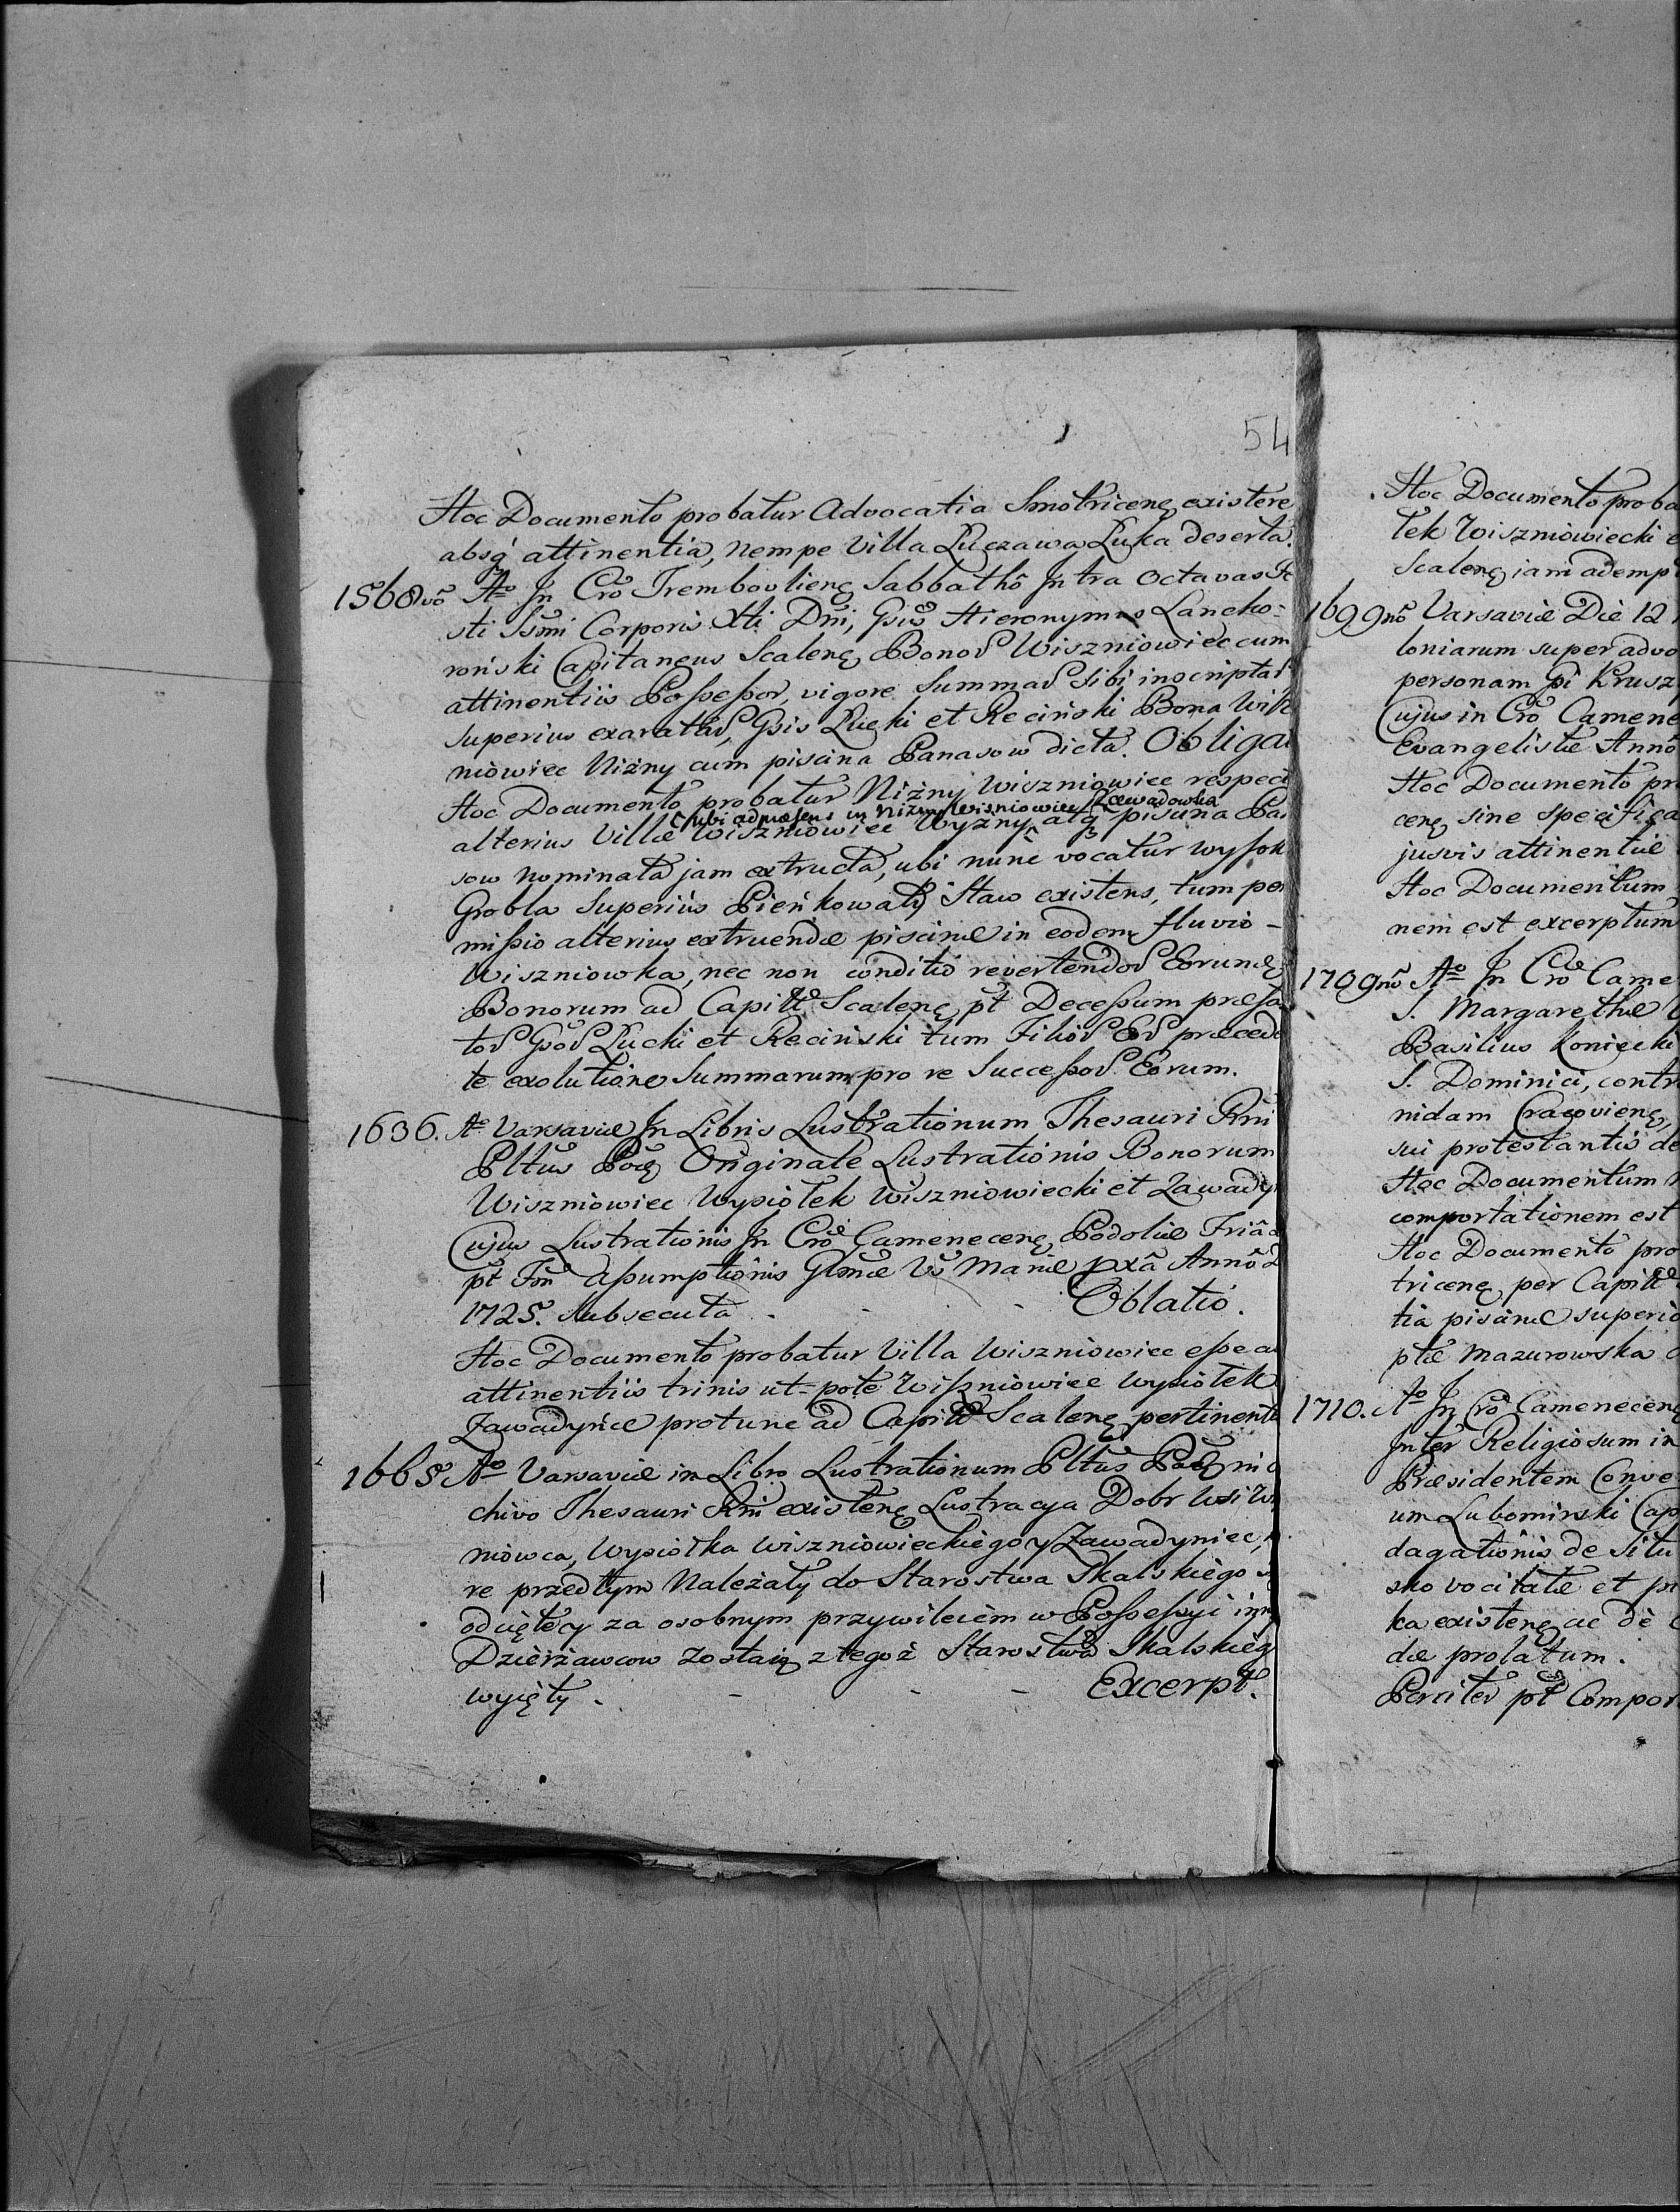 54
Hoc Documento probatur Advocatia Smotricenę existere
absq́ attinentia, nempe Villa Łuczawa Łuka deserta.
1568vō Aō In Crō Trembovlienę Sabbathô Intra Octavas Fe
sti Ssm̃i Corporis Xti Dñi, Gsūs Hieronymus Lancko-
roński Capitaneus Scalenę Bonoꝝ Wiszniowiec cum
attinentiis Possessor, vigore Summaꝝ Sibi inscriptaꝝ
Superius exarataꝝ, Gsis Łucki et Reciński Bona Wisz
niowiec Niżny cum piscina Panasow dicta. Obligat
Hoc Documento probatur Niżny Wiszniowiec respectu
ubi ad præsens in Niżny Wiszniowiec Zawadowka
alterius Villæ Wiszniowiec Wyżny atq́ piscina Pana
sow nominata jam extructa, ubi nunc vocatur Wysok
Grobla Superius Pieńkowaty Staw existens, tum per
missio alterius extruendæ piscinæ in eodem fluvio -
Wiszniowka, nec non conditio revertendoꝝ Eorundę
Bonorum ad Capittū Scalenę pt̄ Decessum præfa
toꝝ Gsoꝝ Łucki et Reciński tum Filioꝝ Eoꝝ præcede
te exolutione Summarum pro re Successoꝝ Eorum.
1636. Aō Varsaviæ In Libris Lustrationum Thesauri Rñi
Pltūs Polę Originale Lustrationis Bonorum
Wiszniowiec Wysiołek Wiszniowiecki et Zawady
Cujus Lustrationis In Crō Camenecenę Podoliæ Friâ 2
pt̄ Fm̄ Assumptionis Glsmæ Vs̄ Mariæ pxâ Annô D
1725. subsecuta - - - Oblatio.
Hoc Documento probatur Villa Wiszniowiec esse cu
attinentiis trinis ut-pote Wiszniowiec Wysiołek
Zawadyńce protunc ad Capittū Scalenę pertinente
1665 Aō Varsaviæ in Libro Lustrationum Pltūs Polę in
chivo Thesauri Rñi existenę Lustracya Dobr Wsi Wi
niowca, Wysiołka Wiszniowieckiego y Zawadyniec,
re przedtym Należały do Starostwa Skalskiego
odcięte y za osobnym przywileiem w Possessyi inn
Dzierżawcow zostaią z tegoż Starostwa Skalskieg
wyięty. - - - Excerpt.
Hoc Documento proba
tek Wiszniowiecki e
Scalenę jam ademp
1699nō Varsaviæ Die 12
loniarum super advo
personam Gi Krusz
Cujus in Crō Camene
Evangelistæ Annô
Hoc Documento pr
cenę sine specifica
jusvis attinentiæ
Hoc Documentum
nem est excerptum
1709nō Aō In Crō Came
S. Margarethæ V
Basilius Koniecki
S. Dominici, contr
nidam Cracovienę,
sui protestantis de
Hoc Documentum
comportationem est
Hoc Documento pro
tricenę per Capittū
tia piscinæ superio
ptæ Mazurowska
1710. Aō In Crō Camenecenę
Inter Religiosum in
Præsidentem Conve
um Lubomirski Cap
dagationis de Situ
sko vocitatæ et pi
ka existenę ac de
dæ prolatum.
Pariter pt̄ Compor